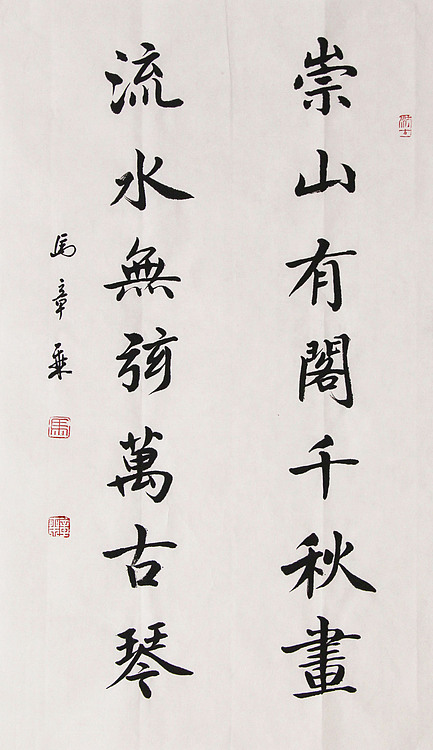 崇山有閣千秋畫
流水無弦萬古琴
馬章乘